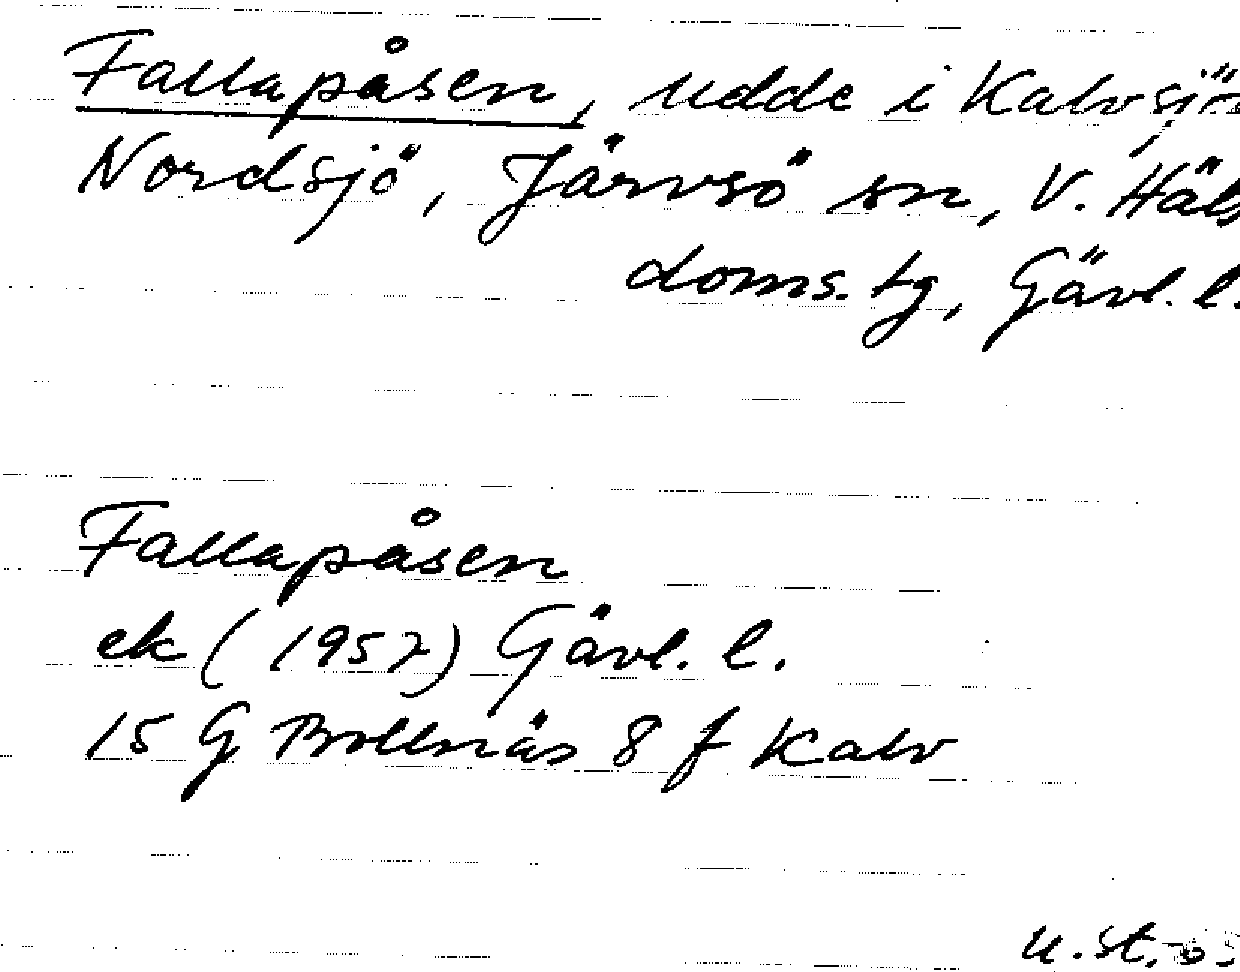 Fallapåsen, udde i Kalvsjö
Nordsjö, Järvsö sn, V. Häls
doms. tg, Gävl. l.
Fallapåsen
ek (1957) Gävl. l.
15 G Bollnäs 8 f Kalv
u. st.